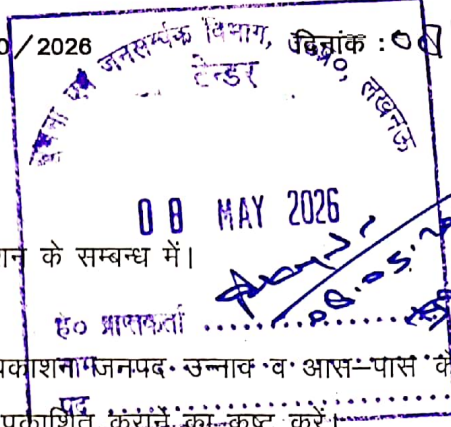 /2026
दिनांक :
सूचना एवं जनसम्पर्क विभाग, उ०प्र०, लखनऊ
टेन्डर
08 MAY 2026
के सम्बन्ध में।
ह० प्राप्तकर्ता
जनपद उन्नाव व आस–पास के
पद
प्रकाशित कराने का कष्ट करें।